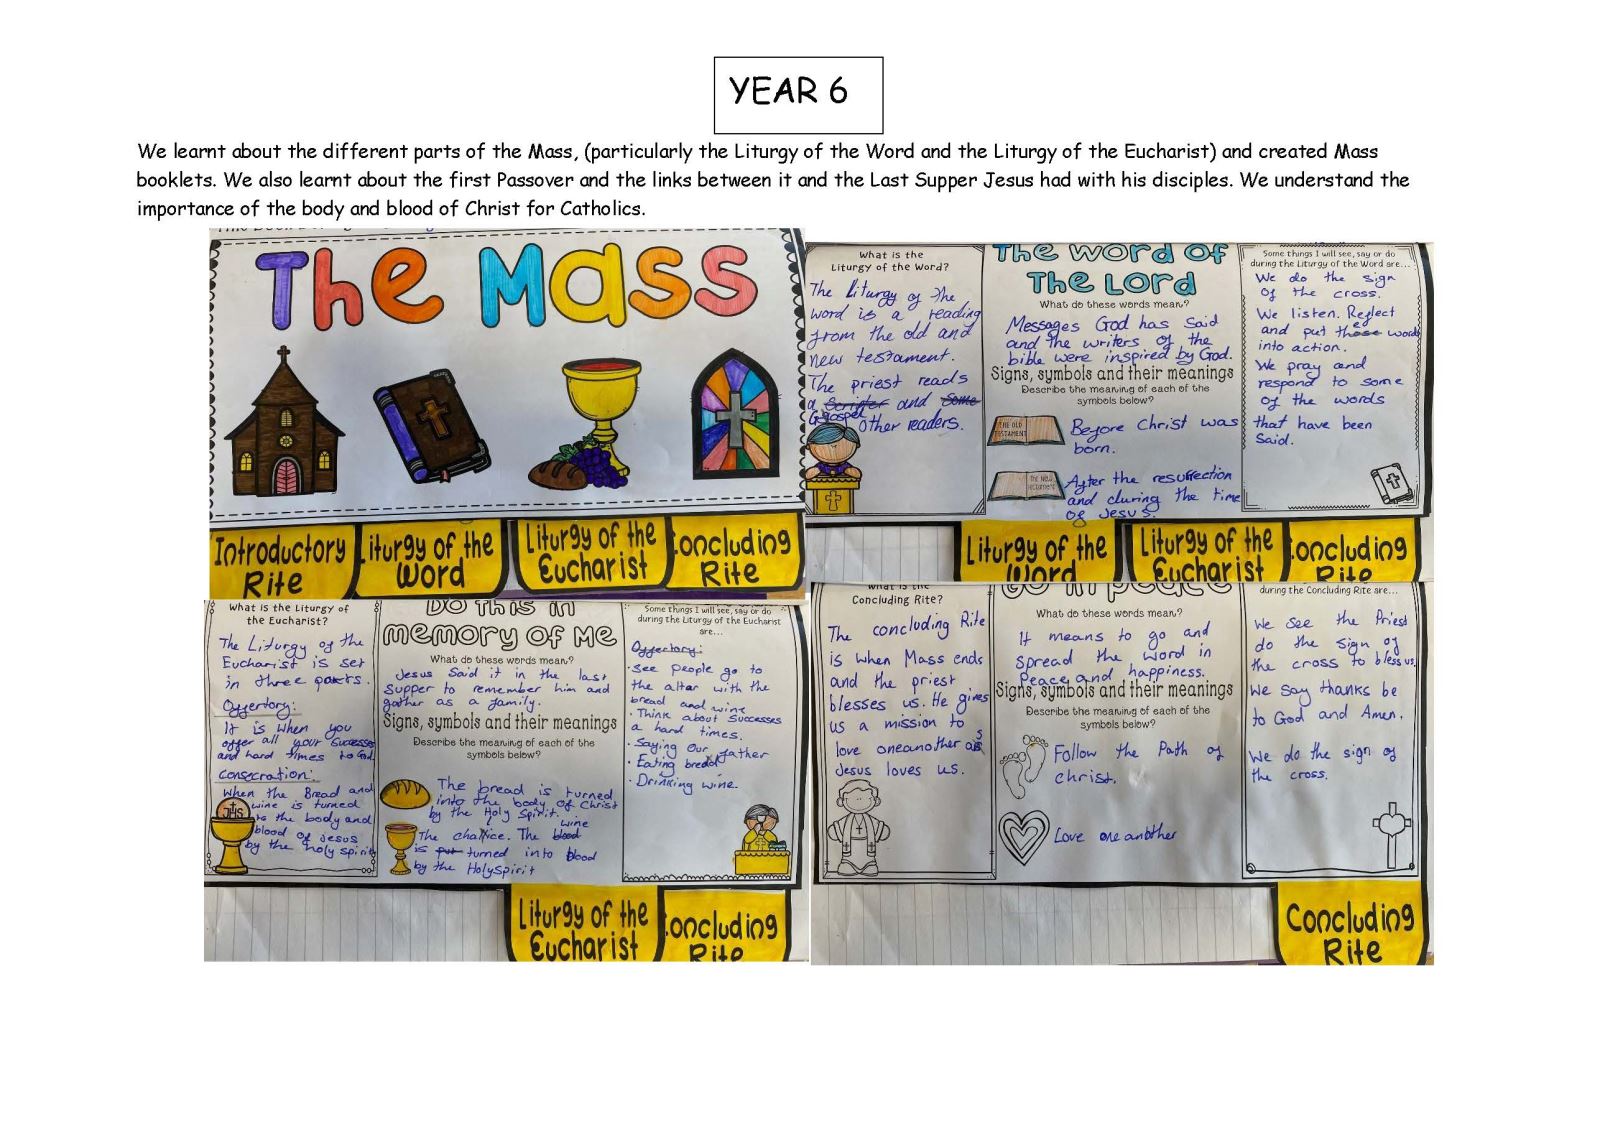 YEAR 6
We learnt about the different parts of the Mass, (particularly the Liturgy of the Word and the Liturgy of the Eucharist) and created Mass
booklets. We also learnt about the first Passover and the links between it and the Last Supper Jesus had with his disciples. We understand the
importance of the body and blood of Christ for Catholics.
The Mass
Introductory
Rite
Liturgy of the
Word
Liturgy of the
Eucharist
Concluding
Rite
What is the
Liturgy of the Word?
The Liturgy of the
word is a reading
from the old and
new testament.
The priest reads
a and
Gospel other readers.
The Word of
The Lord
What do these words mean?
Messages God has said
and the writers of the
bible were inspired by God.
Signs, symbols and their meanings
Describe the meaning of each of the
symbols below?
THE OLD
TESTAMENT
Before Christ was
born.
THE NEW
TESTAMENT
After the resurrection
and during the time
of Jesus.
Some things I will see, say or do
during the Liturgy of the Word are...
We do the sign
of the cross.
We listen. Reflect
and put these words
into action.
We pray and
respond to some
of the words
that have been
said.
Liturgy of the
Word
Liturgy of the
Eucharist
Concluding
Rite
What is the Liturgy of
the Eucharist?
The Liturgy of the
Eucharist is set
in three parts.
Offertory:
It is when you
offer all your success
and hard times to God.
Consecration:
When the Bread and
wine is turned
to the body and
blood of Jesus
by the holy spirit
IHS
Do this in
memory of Me
What do these words mean?
Jesus said it in the last
supper to remember him and
gather as a family.
Signs, symbols and their meanings
Describe the meaning of each of the
symbols below?
The bread is turned
into the body of Christ
by the Holy Spirit.
The chalice. The wine
is turned into blood
by the HolySpirit
Some things I will see, say or do
during the Liturgy of the Eucharist
are...
Offertory:
· See people go to
the altar with the
bread and wine
· Think about successes
a hard times.
· Saying Our father
· Eating bread
· Drinking wine.
Liturgy of the
Eucharist
Concluding
Rite
What is the
Concluding Rite?
The concluding Rite
is when Mass ends
and the priest
blesses us. He gives
us a mission to
love oneanother as
Jesus loves us.
Go in peace
What do these words mean?
It means to go and
spread the word in
Peace and happiness.
Signs, symbols and their meanings
Describe the meaning of each of the
symbols below?
Follow the Path of
christ.
Love one another
during the Concluding Rite are...
We see the Priest
do the sign of
the cross to bless us.
We say thanks be
to God and Amen.
We do the sign of
the cross.
Concluding
Rite